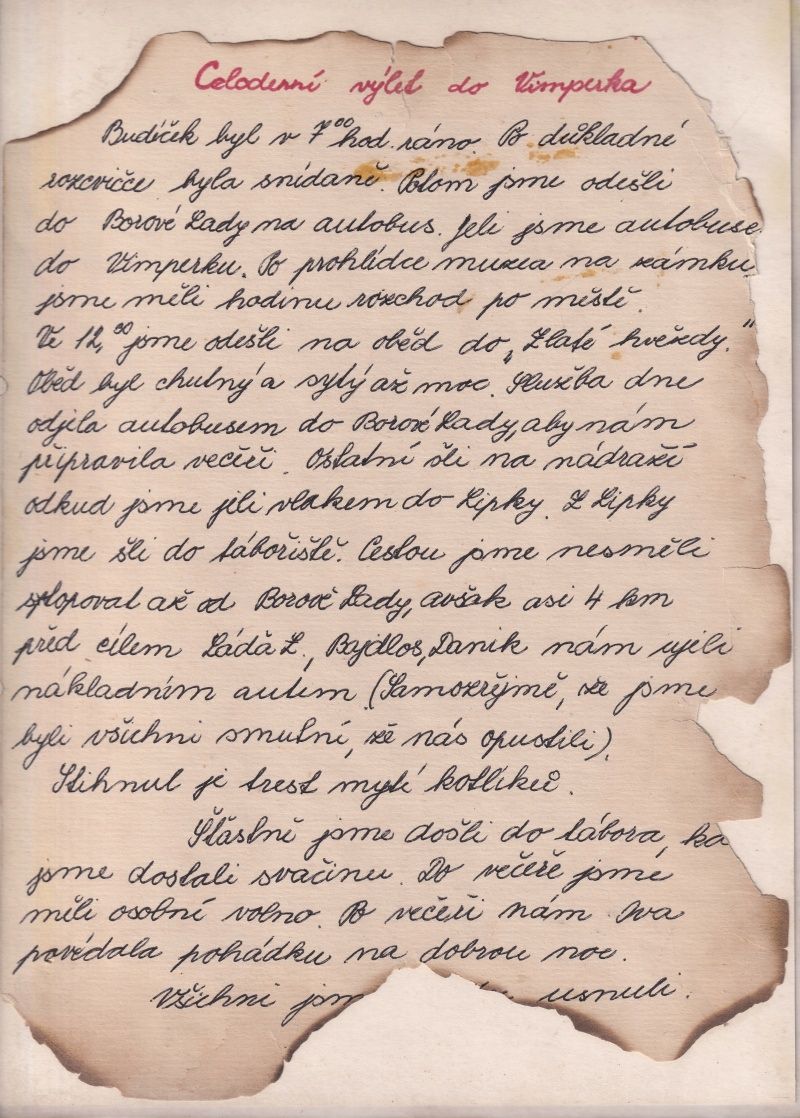 Celodenní výlet do Vimperka
Budíček byl v 7⁰⁰ hod. ráno. Po důkladné
rozcvičce byla snídaně. Potom jsme odešli
do Borové Lady na autobus. Jeli jsme autobuse
do Vimperku. Po prohlídce muzea na zámku
jsme měli hodinu rozchod po městě.
Ve 12,³⁰ jsme odešli na oběd do „Zlaté hvězdy."
Oběd byl chutný a sytý až moc. Služba dne
odjela autobusem do Borové Lady, aby nám
připravila večeři. Ostatní šli na nádraží
odkud jsme jeli vlakem do Lipky. Z Lipky
jsme šli do tábořiště. Cestou jsme nesměli
stopovat až od Borové Lady, avšak asi 4 km
před cílem Láďa L., Bajdlos, Daník nám ujeli
nákladním autem (Samozřejmě, že jsme
byli všichni smutní, že nás opustili).
Stihnul je trest mytí kotlíků.
Šťastně jsme došli do tábora, ka
jsme dostali svačinu. Do večeře jsme
měli osobní volno. Po večeři nám Iva
povédala pohádku na dobrou noc.
Všichni jsm usnuli.